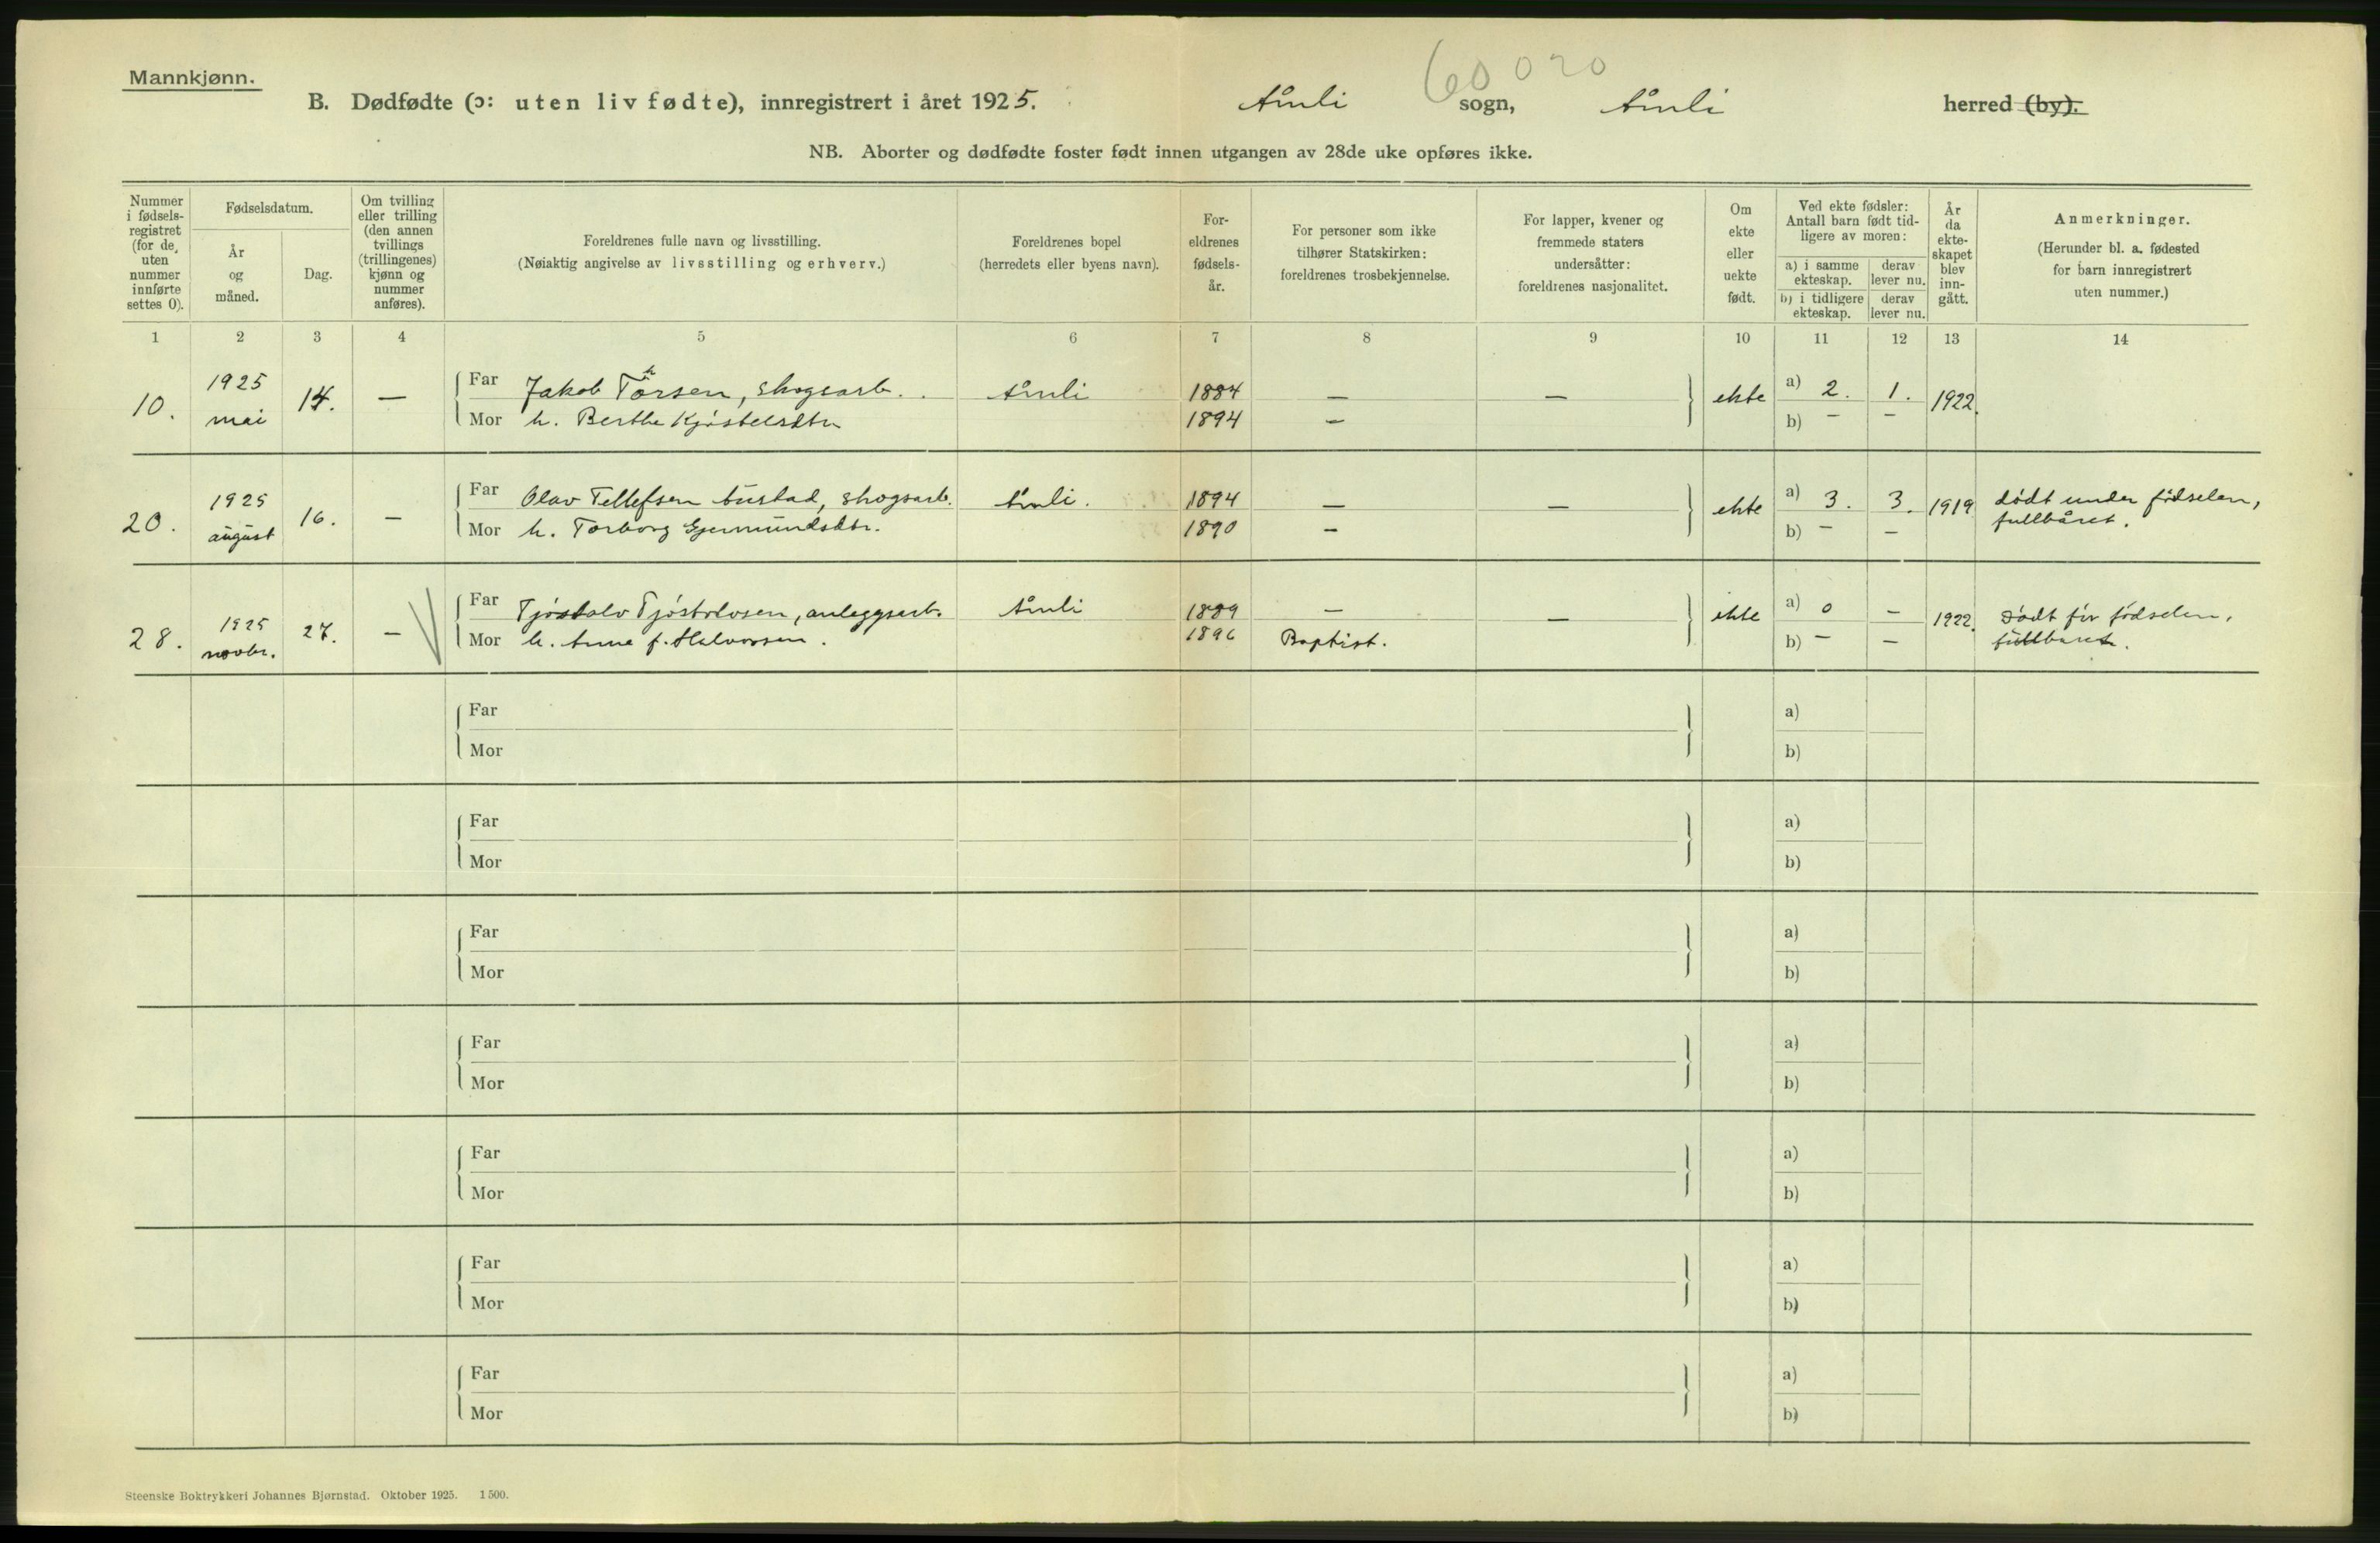 Mannkjønn.
60 020
B. Dødfødte (ɔ: uten liv fødte), innregistrert i året 1925. Åmli sogn, Åmli herred (by).
NB. Aborter og dødfødte foster født innen utgangen av 28de uke opføres ikke.
Nummer i fødsels-registret (for de uten nummer innførte settes 0).
Fødselsdatum.
År og måned.
Dag.
Om tvilling eller trilling (den annen tvillings (trillingenes) kjønn og nummer anføres).
Foreldrenes fulle navn og livsstilling.
(Nøiaktig angivelse av livsstilling og erhverv.)
Foreldrenes bopel
(herredets eller byens navn).
For-eldrenes fødsels-år.
For personer som ikke tilhører Statskirken: foreldrenes trosbekjennelse.
For lapper, kvener og fremmede staters undersåtter: foreldrenes nasjonalitet.
Om ekte eller uekte født.
Ved ekte fødsler: Antall barn født tid-ligere av moren:
a) i samme ekteskap. derav lever nu.
b) i tidligere ekteskap. derav lever nu.
År da ekte-skapet blev inn-gått.
Anmerkninger.
(Herunder bl. a. fødested for barn innregistrert uten nummer.)
1 2 3 4 5 6 7 8 9 10 11 12 13 14
10. 1925 mai 14. — Far Jakob Torsen, skogsarb. Åmli 1884 — — ekte a) 2. 1. 1922.
Mor h. Berthe Kjøstelsdtr 1894 — b) — —
20. 1925 august 16. — Far Olav Tellefsen Aústad, skogsarb. Åmli. 1894 — — ekte a) 3. 3. 1919 dødt under fødselen,
Mor h. Torborg Gjermundsdtr. 1890 — b) — — fullbåret.
28. 1925 novbr. 27. — Far Tjøstolv Tjøstolvsen, anleggsarb. Åmli 1889 — — ekte a) 0 — 1922. Dødt før fødselen,
Mor h. Anne f. Halvorsen. 1896 Baptist. b) — — fullbåret.
Far a)
Mor b)
Far a)
Mor b)
Far a)
Mor b)
Far a)
Mor b)
Far a)
Mor b)
Far a)
Mor b)
Far a)
Mor b)
Steenske Boktrykkeri Johannes Bjørnstad. Oktober 1925. 1500.